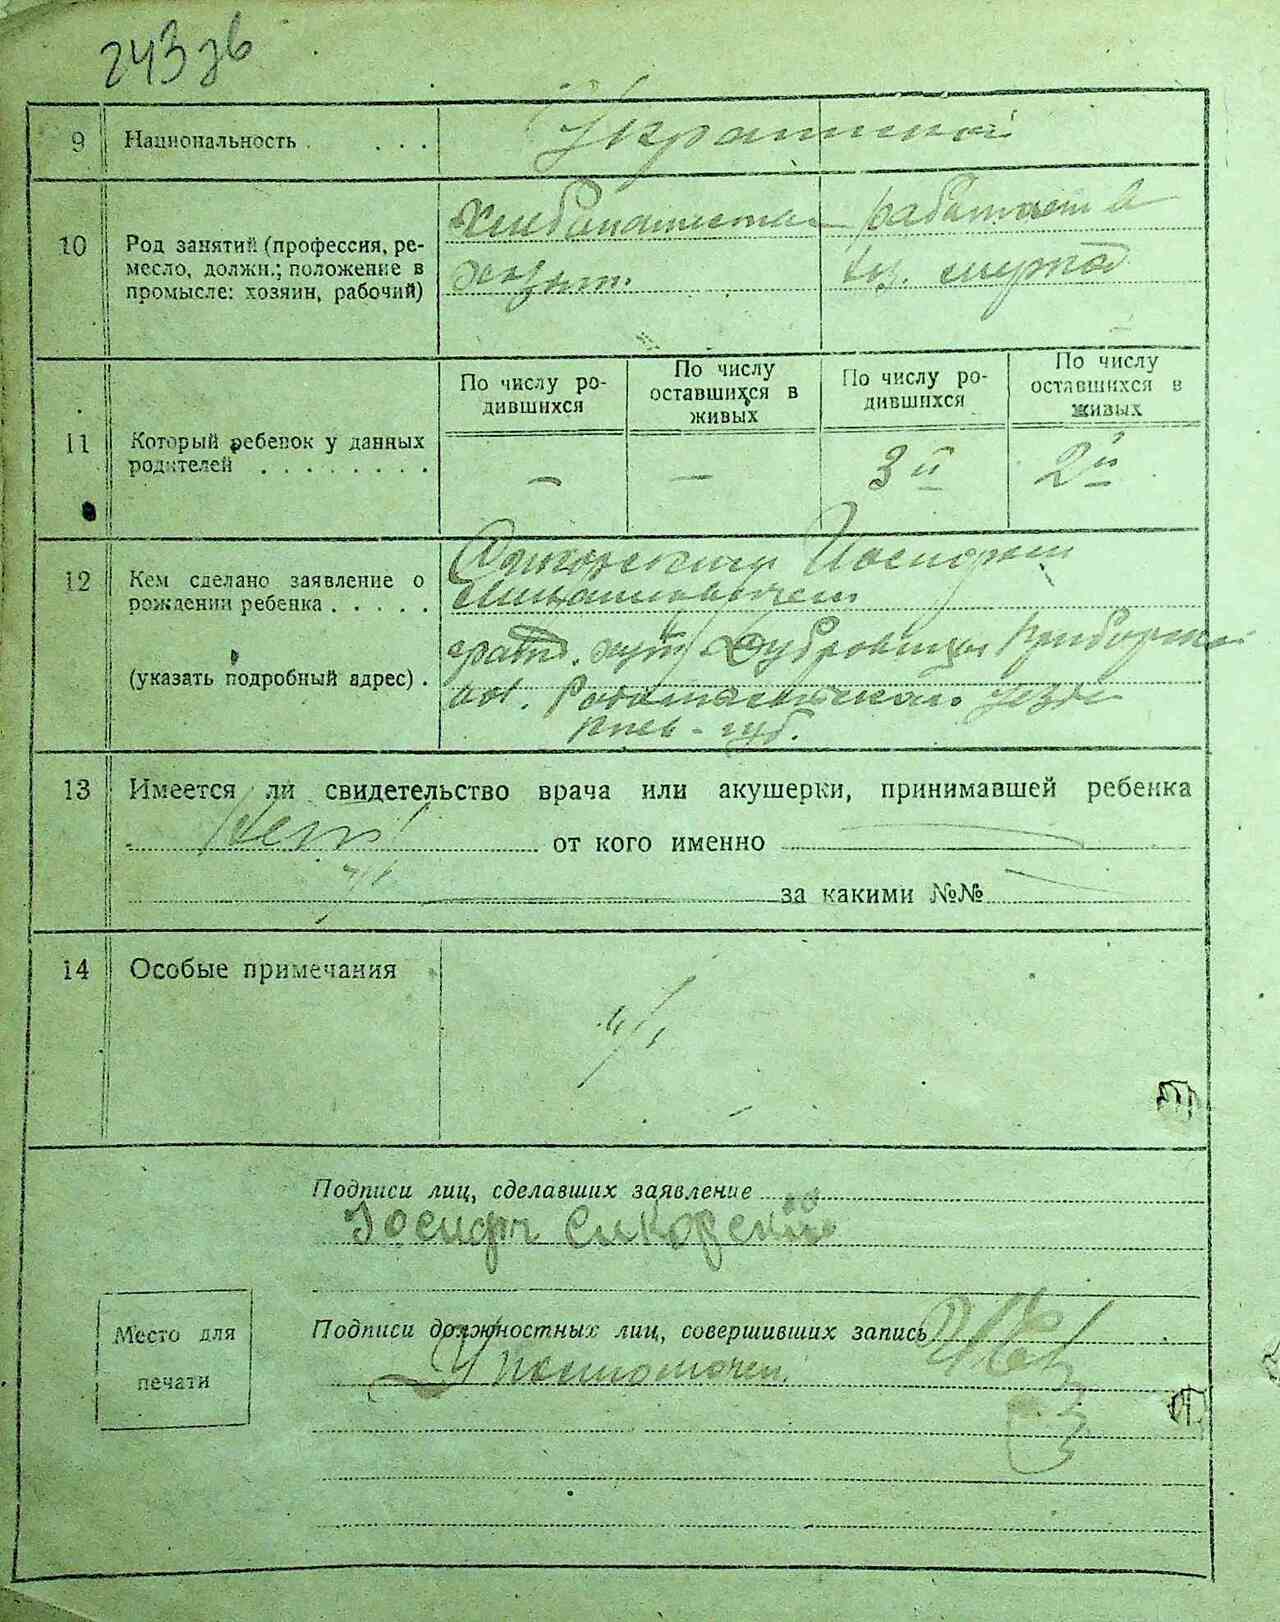 243 зв
9 Национальность . . . . Украинской
10 Род занятий (профессия, ре-
месло, должн.; положение в
промысле: хозяин, рабочий)
хлебопашество
хозяин.
работает в
хоз. мужа
11 Который ребенок у данных
родителей . . . . . . . .
По числу ро-
дившихся
По числу
оставшихся в
живых
По числу ро-
дившихся
По числу
оставшихся в
живых
— — 3й 2й
12 Кем сделано заявление о
рождении ребенка . . . . .
(указать подробный адрес) .
Сикорским Иосифом
гражд. хут. Дубровицы Приборской
вол. Радомысльского уезда
Киев-губ.
13 Имеется ли свидетельство врача или акушерки, принимавшей ребенка
Нет от кого именно
за какими №№
14 Особые примечания
Подписи лиц, сделавших заявление
Іосифъ Сикорскій
Место для
печати
Подписи должностных лиц, совершивших запись